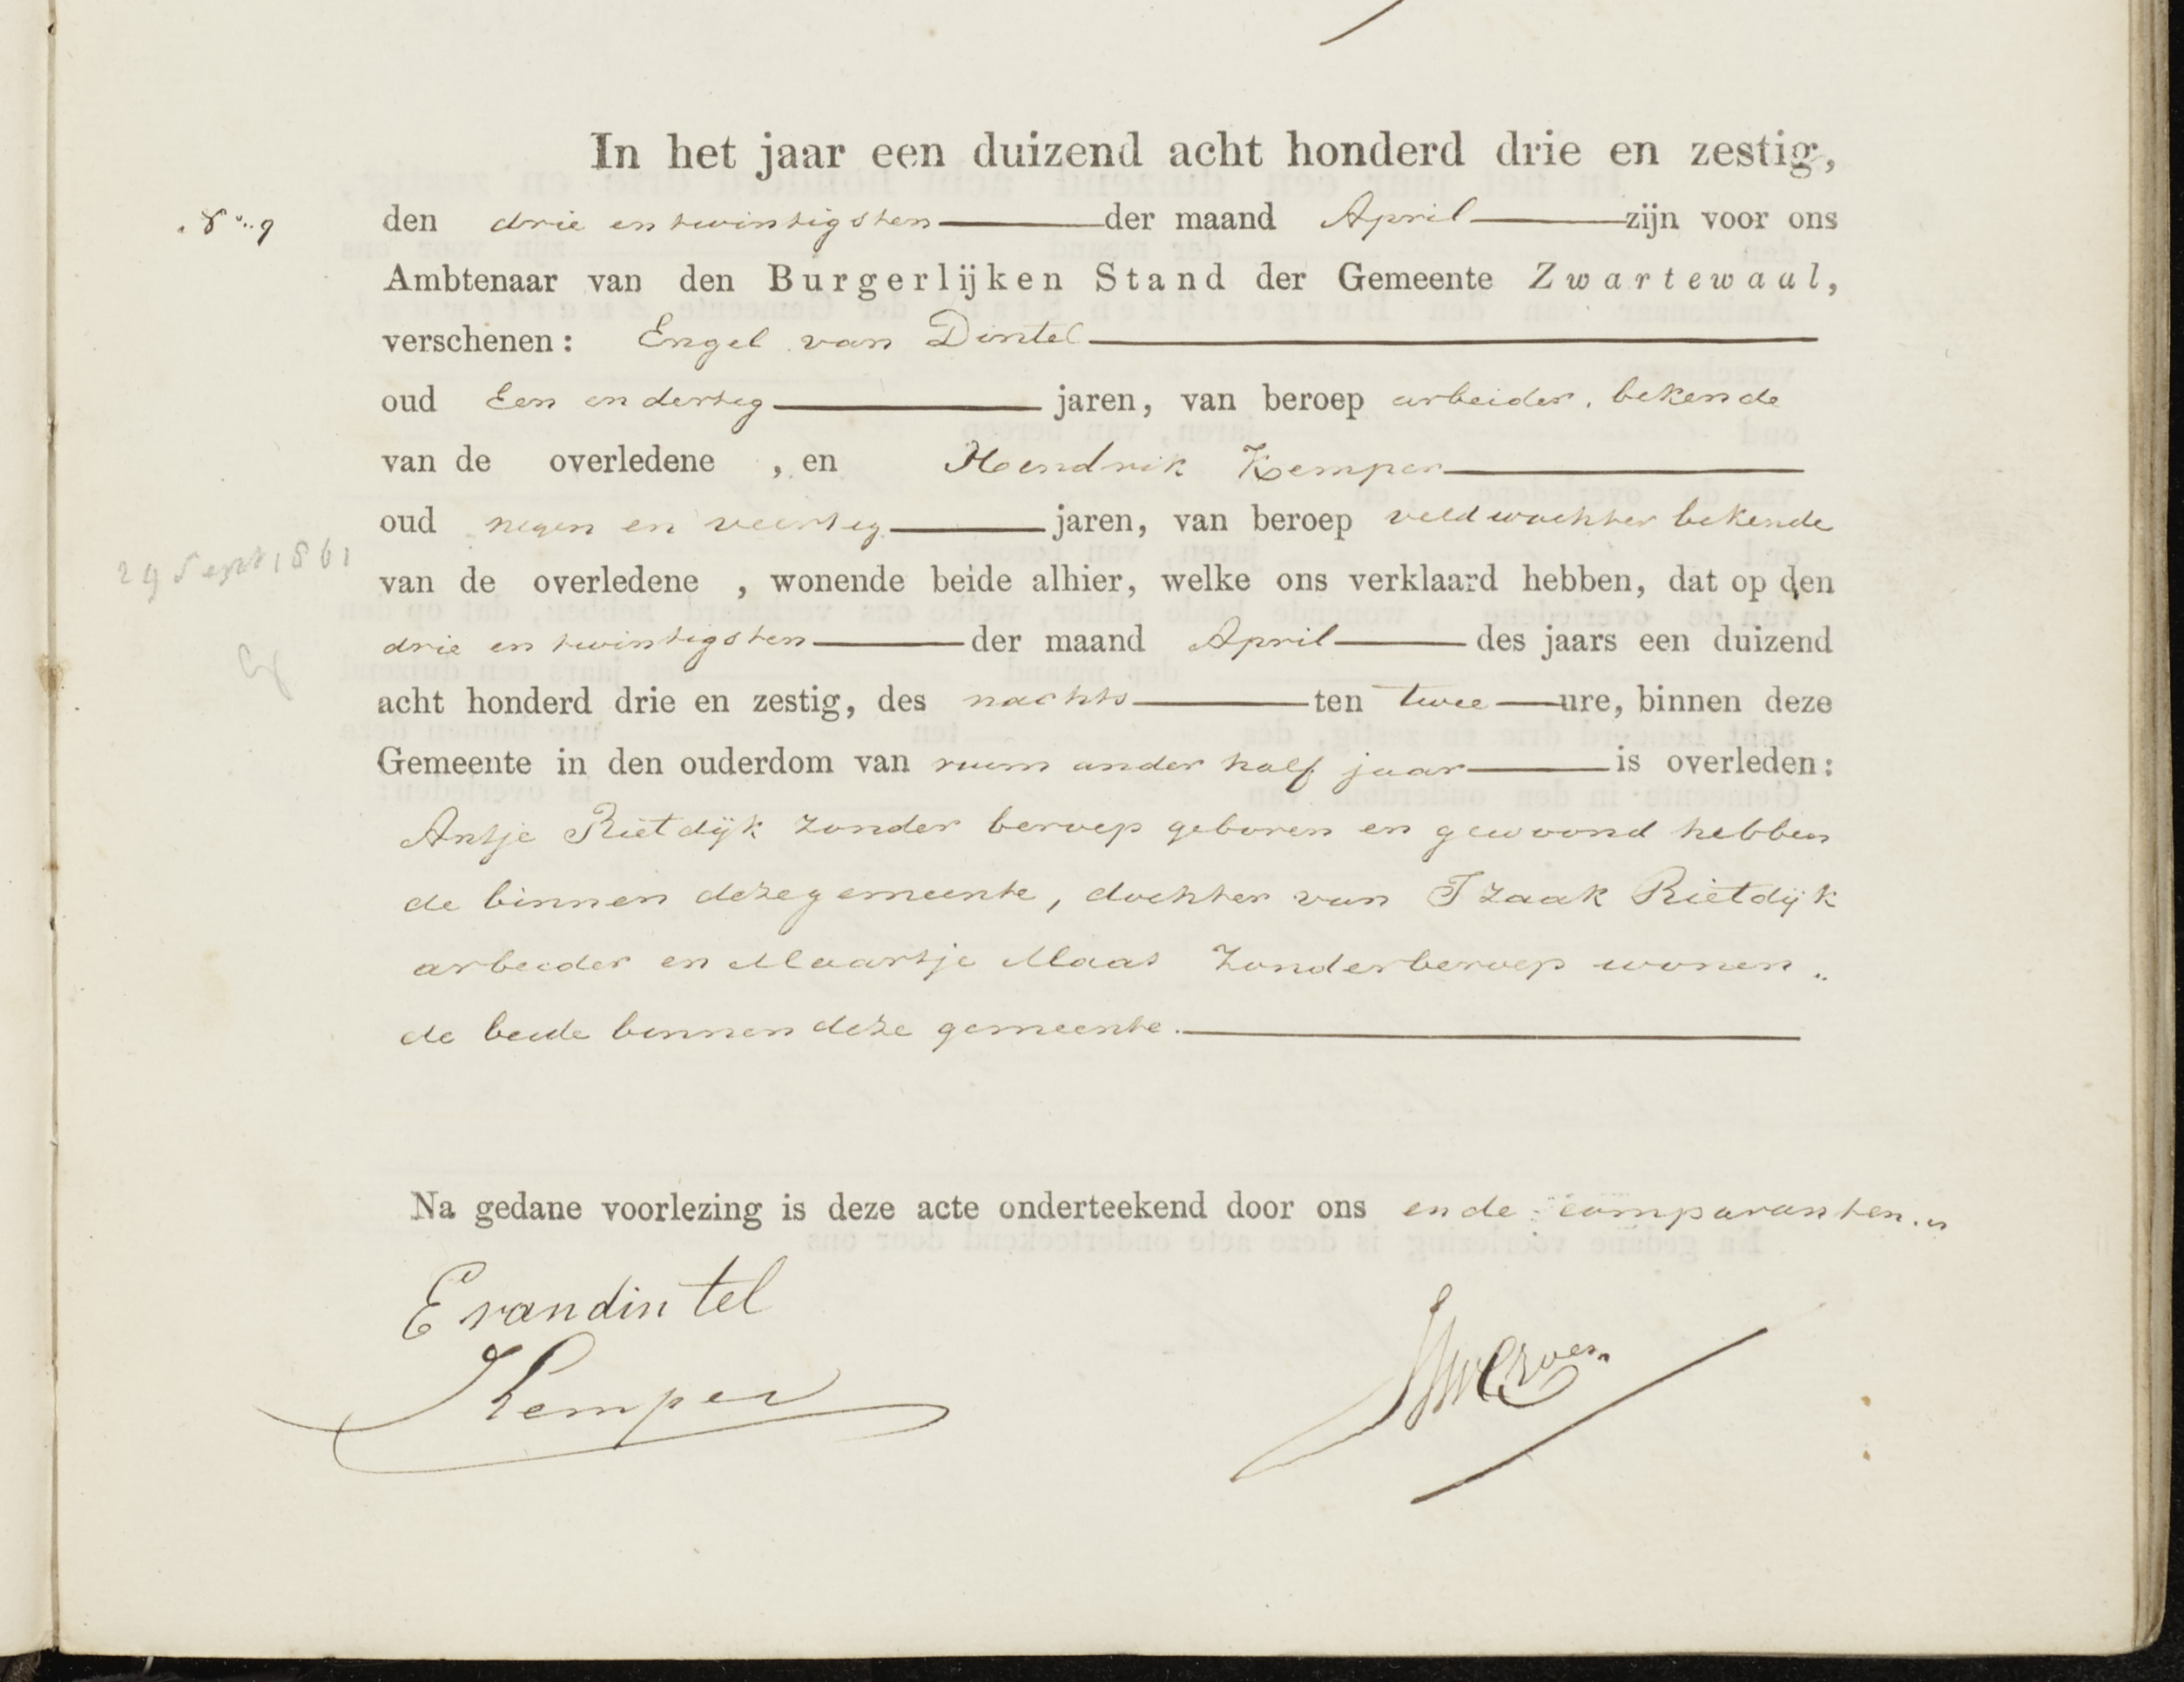 In het jaar een duizend acht honderd drie en zestig,
No. 9
den drie en twintigsten der maand April zijn voor ons
Ambtenaar van den Burgerlijken Stand der Gemeente Zwartewaal,
verschenen: Engel van Dintel
oud Een en dertig jaren, van beroep arbeider, bekende
van de overledene, en Hendrik Kemper
oud negen en veertig jaren, van beroep veldwachter bekende
29 Sept 1861
van de overledene, wonende beide alhier, welke ons verklaard hebben, dat op den
drie en twintigsten der maand April des jaars een duizend
acht honderd drie en zestig, des nachts ten twee ure, binnen deze
Gemeente in den ouderdom van ruim ander half jaar is overleden:
Antje Rietdijk zonder beroep geboren en gewoond hebben
de binnen deze gemeente, dochter van Izaak Rietdijk
arbeider en Maartje Maas zonder beroep wonen„
de beide binnen deze gemeente.
Na gedane voorlezing is deze acte onderteekend door ons en de comparanten.
E van dintel
Kemper